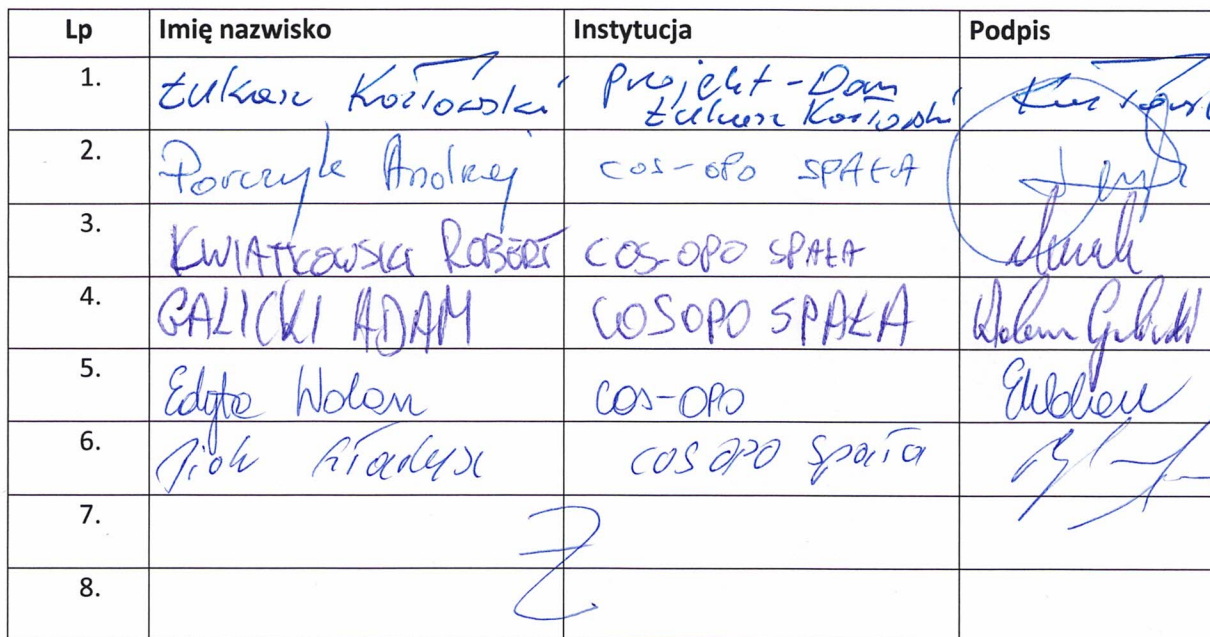 Lp Imię nazwisko Instytucja Podpis
1. Łukasz Kozłowski Projekt-Dom
Łukasz Kozłowski
2. Porczyk Andrzej COS-OPO SPAŁA
3. KWIATKOWSKI ROBERT COS-OPO SPAŁA
4. GALICKI ADAM COSOPO SPAŁA
5. Edyta Wolan COS-OPO
6. COS OPO Spała
7.
8.